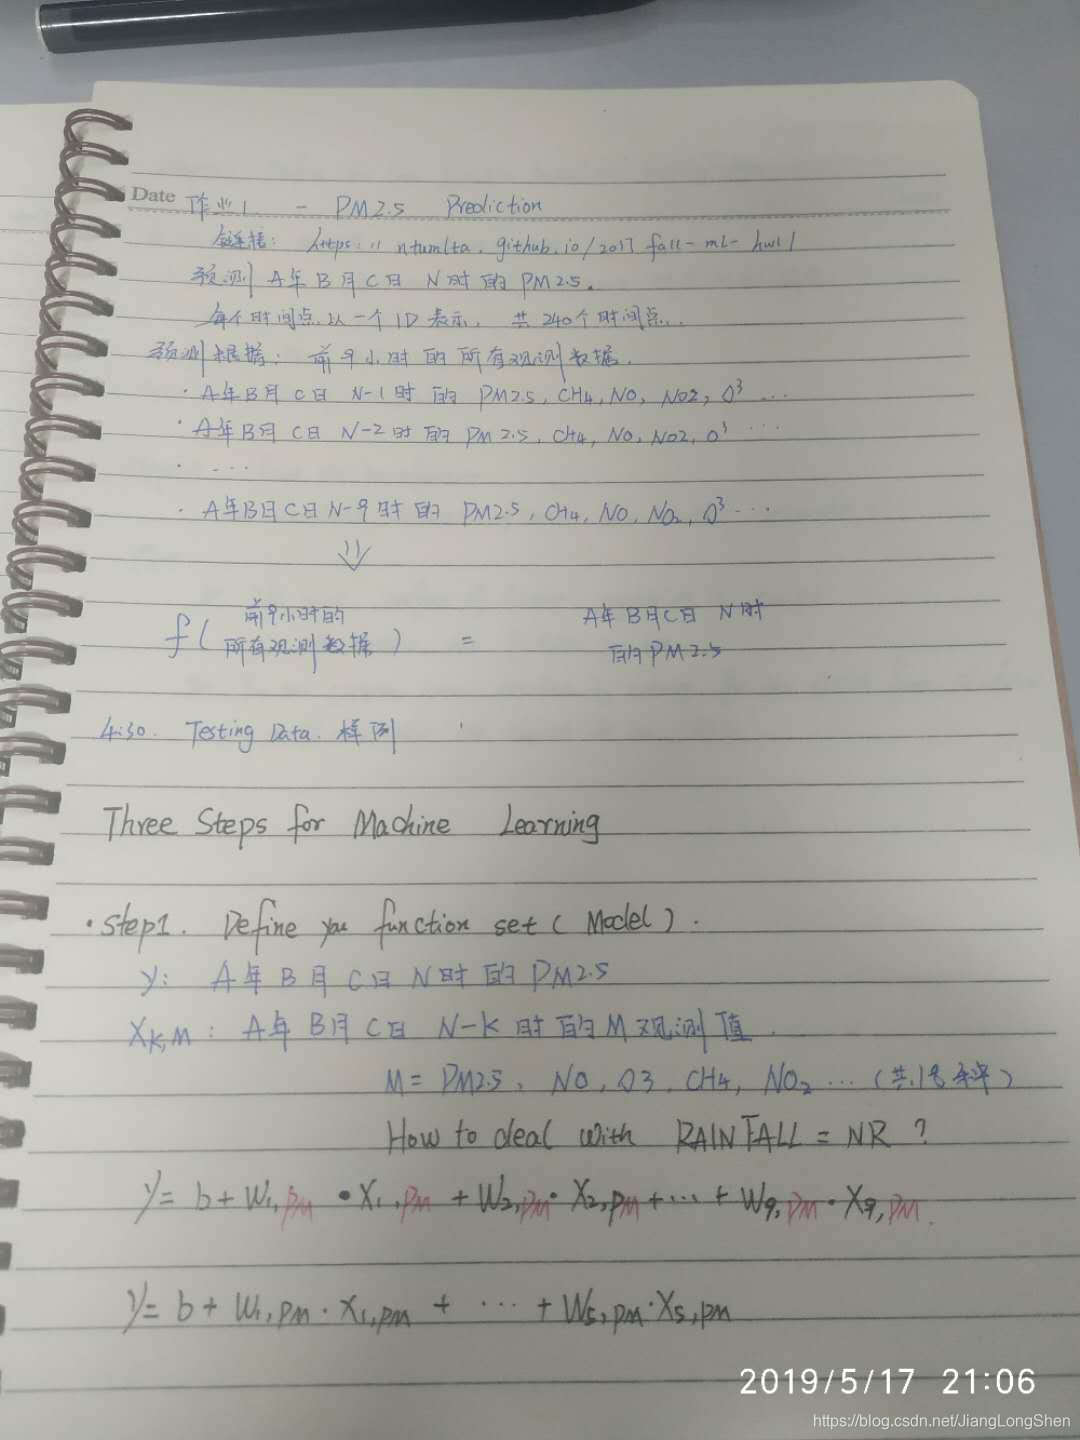 Date 作业1 - PM2.5 Prediction
链接: https:// ntumlta.github.io/2017 fall-ml-hw1/
预测 A年B月C日 N时的PM2.5.
每个时间点以一个ID表示, 共240个时间点.
预测根据: 前9小时的所有观测数据.
· A年B月C日 N-1时的 PM2.5, CH4, NO, NO2, O³ ...
· A年B月C日 N-2时的 PM2.5, CH4, NO, NO2, O³ ...
· ...
· A年B月C日 N-9时的 PM2.5, CH4, NO, NO2, O³ ...
⇓
f( 前9小时的 A年B月C日 N时
所有观测数据 ) = 的PM2.5
4:30. Testing Data. 样例
Three Steps for Machine Learning
·Step1. Define you function set ( Model ).
y: A年B月C日N时的PM2.5
XK,M: A年B月C日 N-K时的M观测值.
M= PM2.5, NO, O3, CH4, NO2 ... (共18种)
How to deal with RAINFALL = NR ?
y= b + W1,PM · X1,PM + W2,PM · X2,PM + ... + W9,PM · X9,PM.
y= b + W1,PM · X1,PM + ... + W5,PM · X5,PM
2019/5/17 21:06
https://blog.csdn.net/JiangLongShen